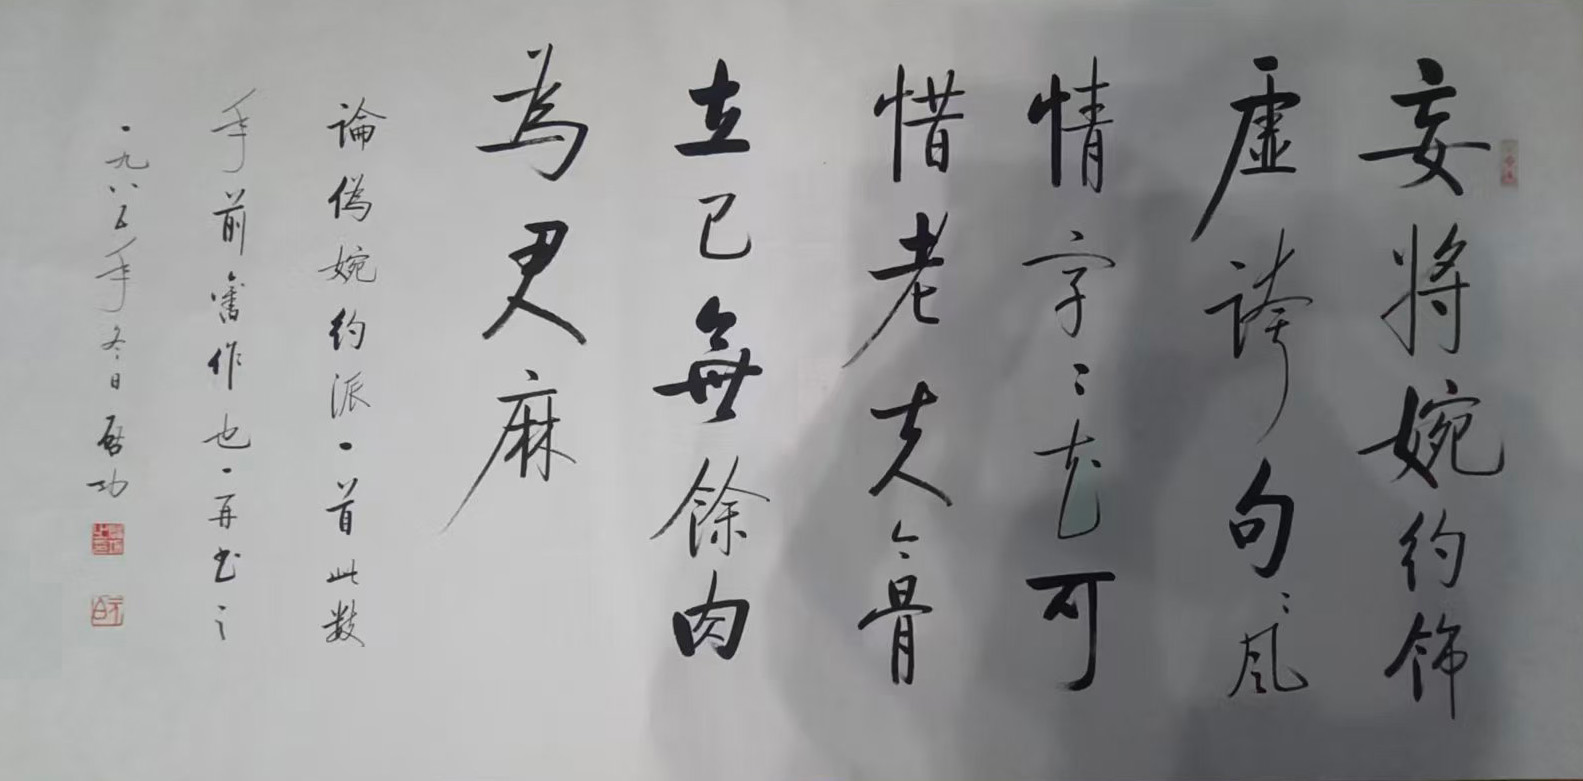 妄將婉約飾
虛誇句〻風
情字〻花可
惜老夫今骨
立已無餘肉
為君麻
論偽婉約派一首此數
年前舊作也一再书之
一九八五年冬日啟功
元白